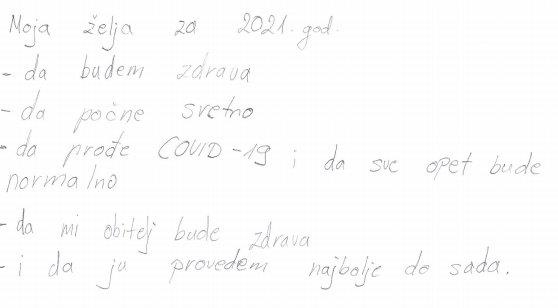 Moja želja za 2021. god.
- da budem zdrava
- da počne sretno
- da prođe COVID-19 i da sve opet bude
normalno
- da mi obitelj bude zdrava
- i da ju provedem najbolje do sada.